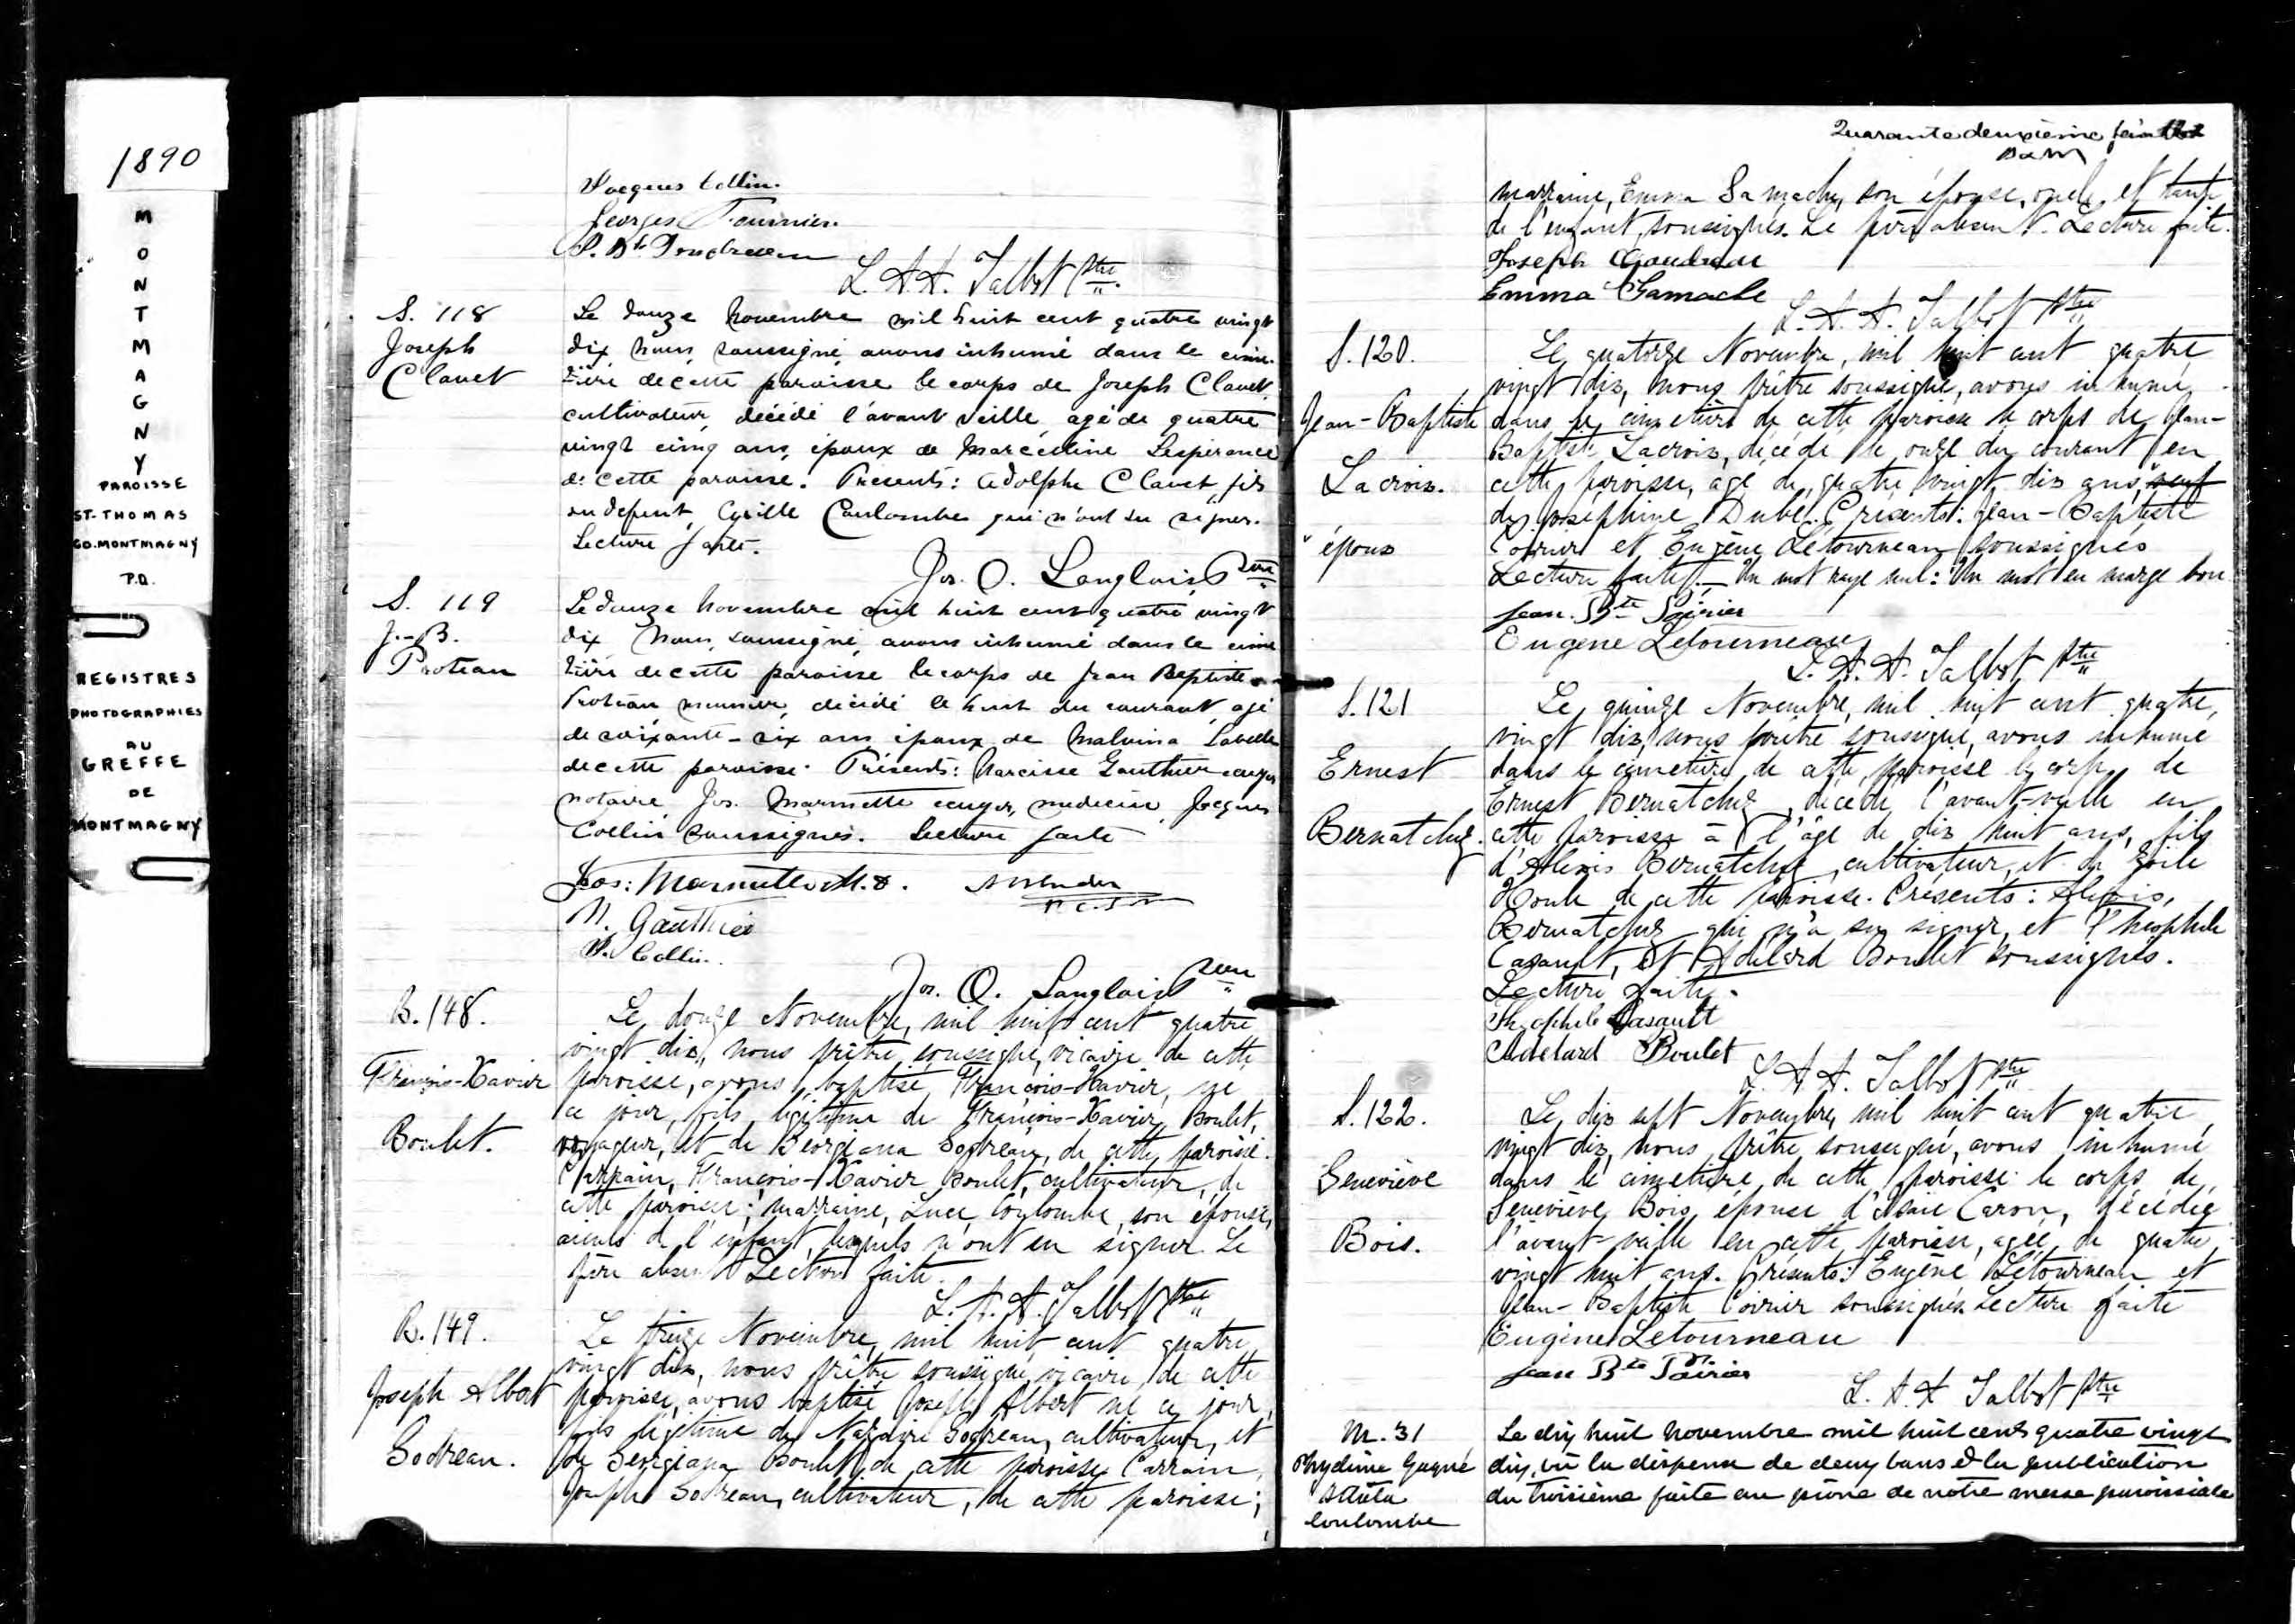 1890
MONTMAGNY
PAROISSE
ST-THOMAS
CO. MONTMAGNY
P.Q.
REGISTRES
PHOTOGRAPHIES
AU
GREFFE
DE
MONTMAGNY
Jacques Collin.
Georges Fournier.
L. A. A. Talbot Ptre
S. 118
Joseph
Clavet
Le douze Novembre mil huit cent quatre vingt
dix Nous soussigné avons inhumé dans le cime-
tière de cette paroisse le corps de Joseph Clavet,
cultivateur, décédé l'avant veille, agé de quatre
vingt cinq ans, époux de Marceline Lespérance
de cette paroisse. Présents: Adolphe Clavet, fils
du defunt, Cyrille Coulombe qui n'ont su signer.
Lecture faite.
Jos. O. Langlois Ptre
S. 119
J.-B.
Proteau
Le douze Novembre mil huit cent quatre vingt
dix Nous, soussigné, avons inhumé dans le cime
tière de cette paroisse le corps de Jean Baptiste
Proteau menuisier, décédé le huit du courant, agé
de soixante-six ans époux de Malvina Labelle
de cette paroisse. Présents: Narcisse Gauthier ecuyer
notaire, Jos. Marmette ecuyer, medecin, Jacques
Collin soussignés. Lecture faite
Jos: Marmette M.D.
N. Gauthier
J. Collin.
Jos. O. Langlois Ptre
B. 148.
François-Xavier
Boulet.
Le douze Novembre, mil huit cent quatre
vingt dix, nous prêtre soussigné, vicaire de cette
paroisse, avons baptisé François-Xavier, né
ce jour, fils légitime de François-Xavier Boulet,
voyageur, et de Georgiana Godreau, de cette paroisse.
Parrain, François-Xavier Boulet, cultivateur, de
cette paroisse; marraine, Luce Coulombe, son épouse,
aieuls de l'enfant, lesquels n'ont su signer. Le
père absent. Lecture faite.
L. A. A. Talbot Ptre
B. 149.
Joseph Albert
Godreau.
Le treize Novembre, mil huit cent quatre
vingt dix, nous prêtre soussigné, vicaire de cette
paroisse, avons baptisé Joseph Albert né ce jour,
fils légitime de Nazaire Godreau, cultivateur, et
de Georgiana Boulet de cette paroisse. Parrain,
Joseph Godreau, cultivateur, de cette paroisse;
Quarante deuxième feuillet
marraine, Emma Gamache, son épouse, oncle et tante
de l'enfant, soussignés. Le père absent. Lecture faite.
Joseph Gaudreau
Emma Gamache
L. A. A. Talbot Ptre
S. 120.
Jean-Baptiste
Lacroix.
" époux
Le quatorze Novembre, mil huit cent quatre
vingt dix, nous prêtre soussigné, avons inhumé
dans le cimetière de cette paroisse le corps de Jean-
Baptiste Lacroix, décédé le onze du courant en
cette paroisse, agé de quatre vingt dix ans, " veuf
de Joséphine Dubé. Présents: Jean-Baptiste
Poirier et Eugène Letourneau soussignés
Lecture faite. - Un mot rayé nul: Un mot en marge bon
Jean Bte Poirier
Eugene Letourneau
L. A. A. Talbot Ptre
S. 121
Ernest
Bernatchez.
Le quinze Novembre, mil huit cent quatre
vingt dix, nous prêtre soussigné, avons inhumé
dans le cimetière de cette paroisse le corps de
Ernest Bernatchez, décédé l'avant-veille en
cette paroisse à l'âge de dix huit ans, fils
d'Alexis Bernatchez, cultivateur, et de Zoile
de cette paroisse. Présents: Alexis
Bernatchez qui n'a su signer, et Theophile
Casault, et Adélard Boulet soussignés.
Lecture faite.
Theophile Casault
Adelard Boulet
L. A. A. Talbot Ptre
S. 122.
Geneviève
Bois.
Le dix sept Novembre, mil huit cent quatre
vingt dix, nous prêtre soussigné, avons inhumé
dans le cimetière de cette paroisse le corps de
Geneviève Bois, épouse d'Isaie Caron, décédée
l'avant-veille en cette paroisse, agée de quatre
vingt huit ans. Présents: Eugène Letourneau et
Jean-Baptiste Poirier soussignés. Lecture faite
Eugène Letourneau
Jean Bte Poirier
L. A. A. Talbot Ptre
M. 31
Phydime Gagné
Coulombe
Le dix huit novembre mil huit cent quatre vingt
dix, vu la dispense de deux bans & la publication
du troisième faite au prône de notre messe paroissiale